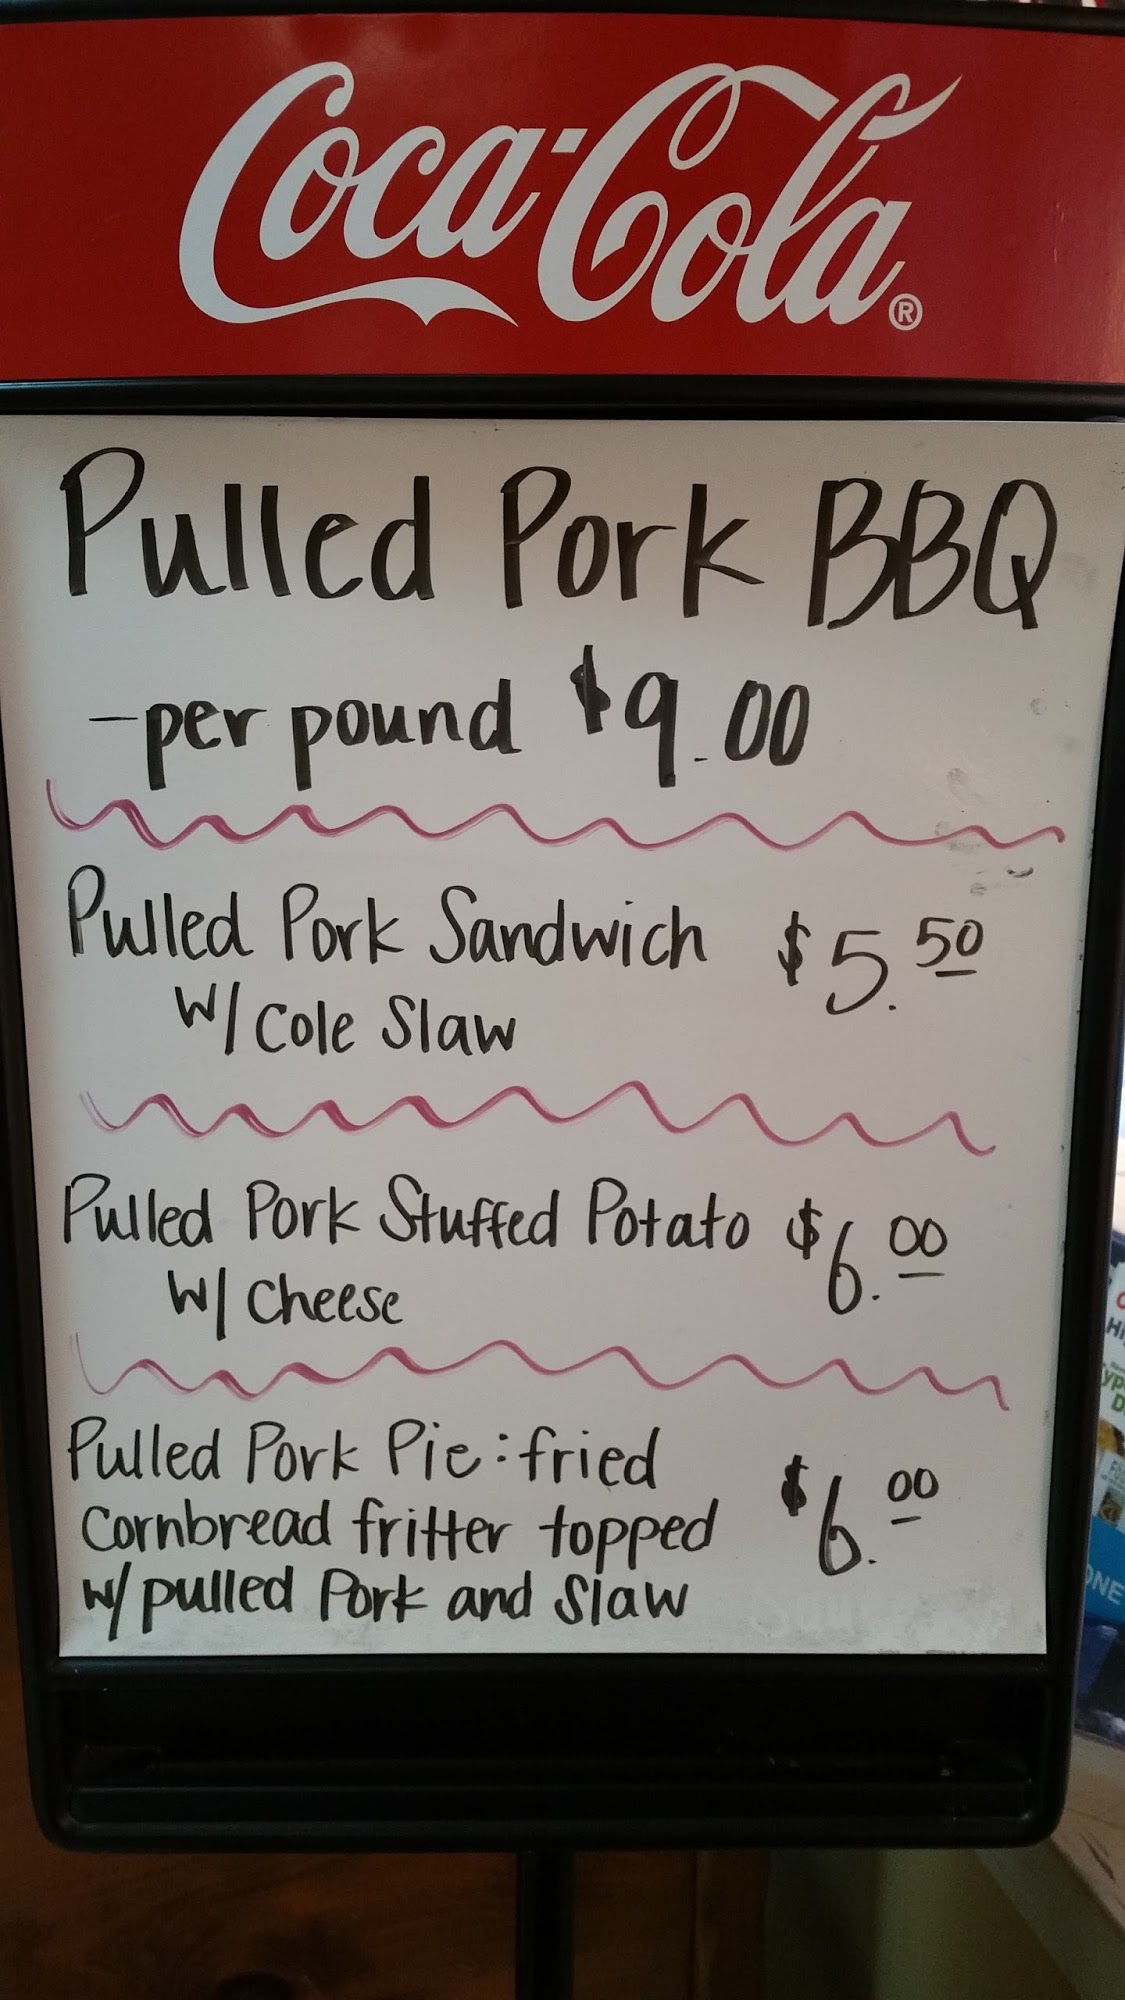 Coca-Cola®
Pulled Pork BBQ
-per pound $9.00
Pulled Pork Sandwich $5.50
w/ Cole Slaw
Pulled Pork Stuffed Potato $6.00
w/ Cheese
Pulled Pork Pie: fried
cornbread fritter topped $6.00
w/ pulled Pork and Slaw